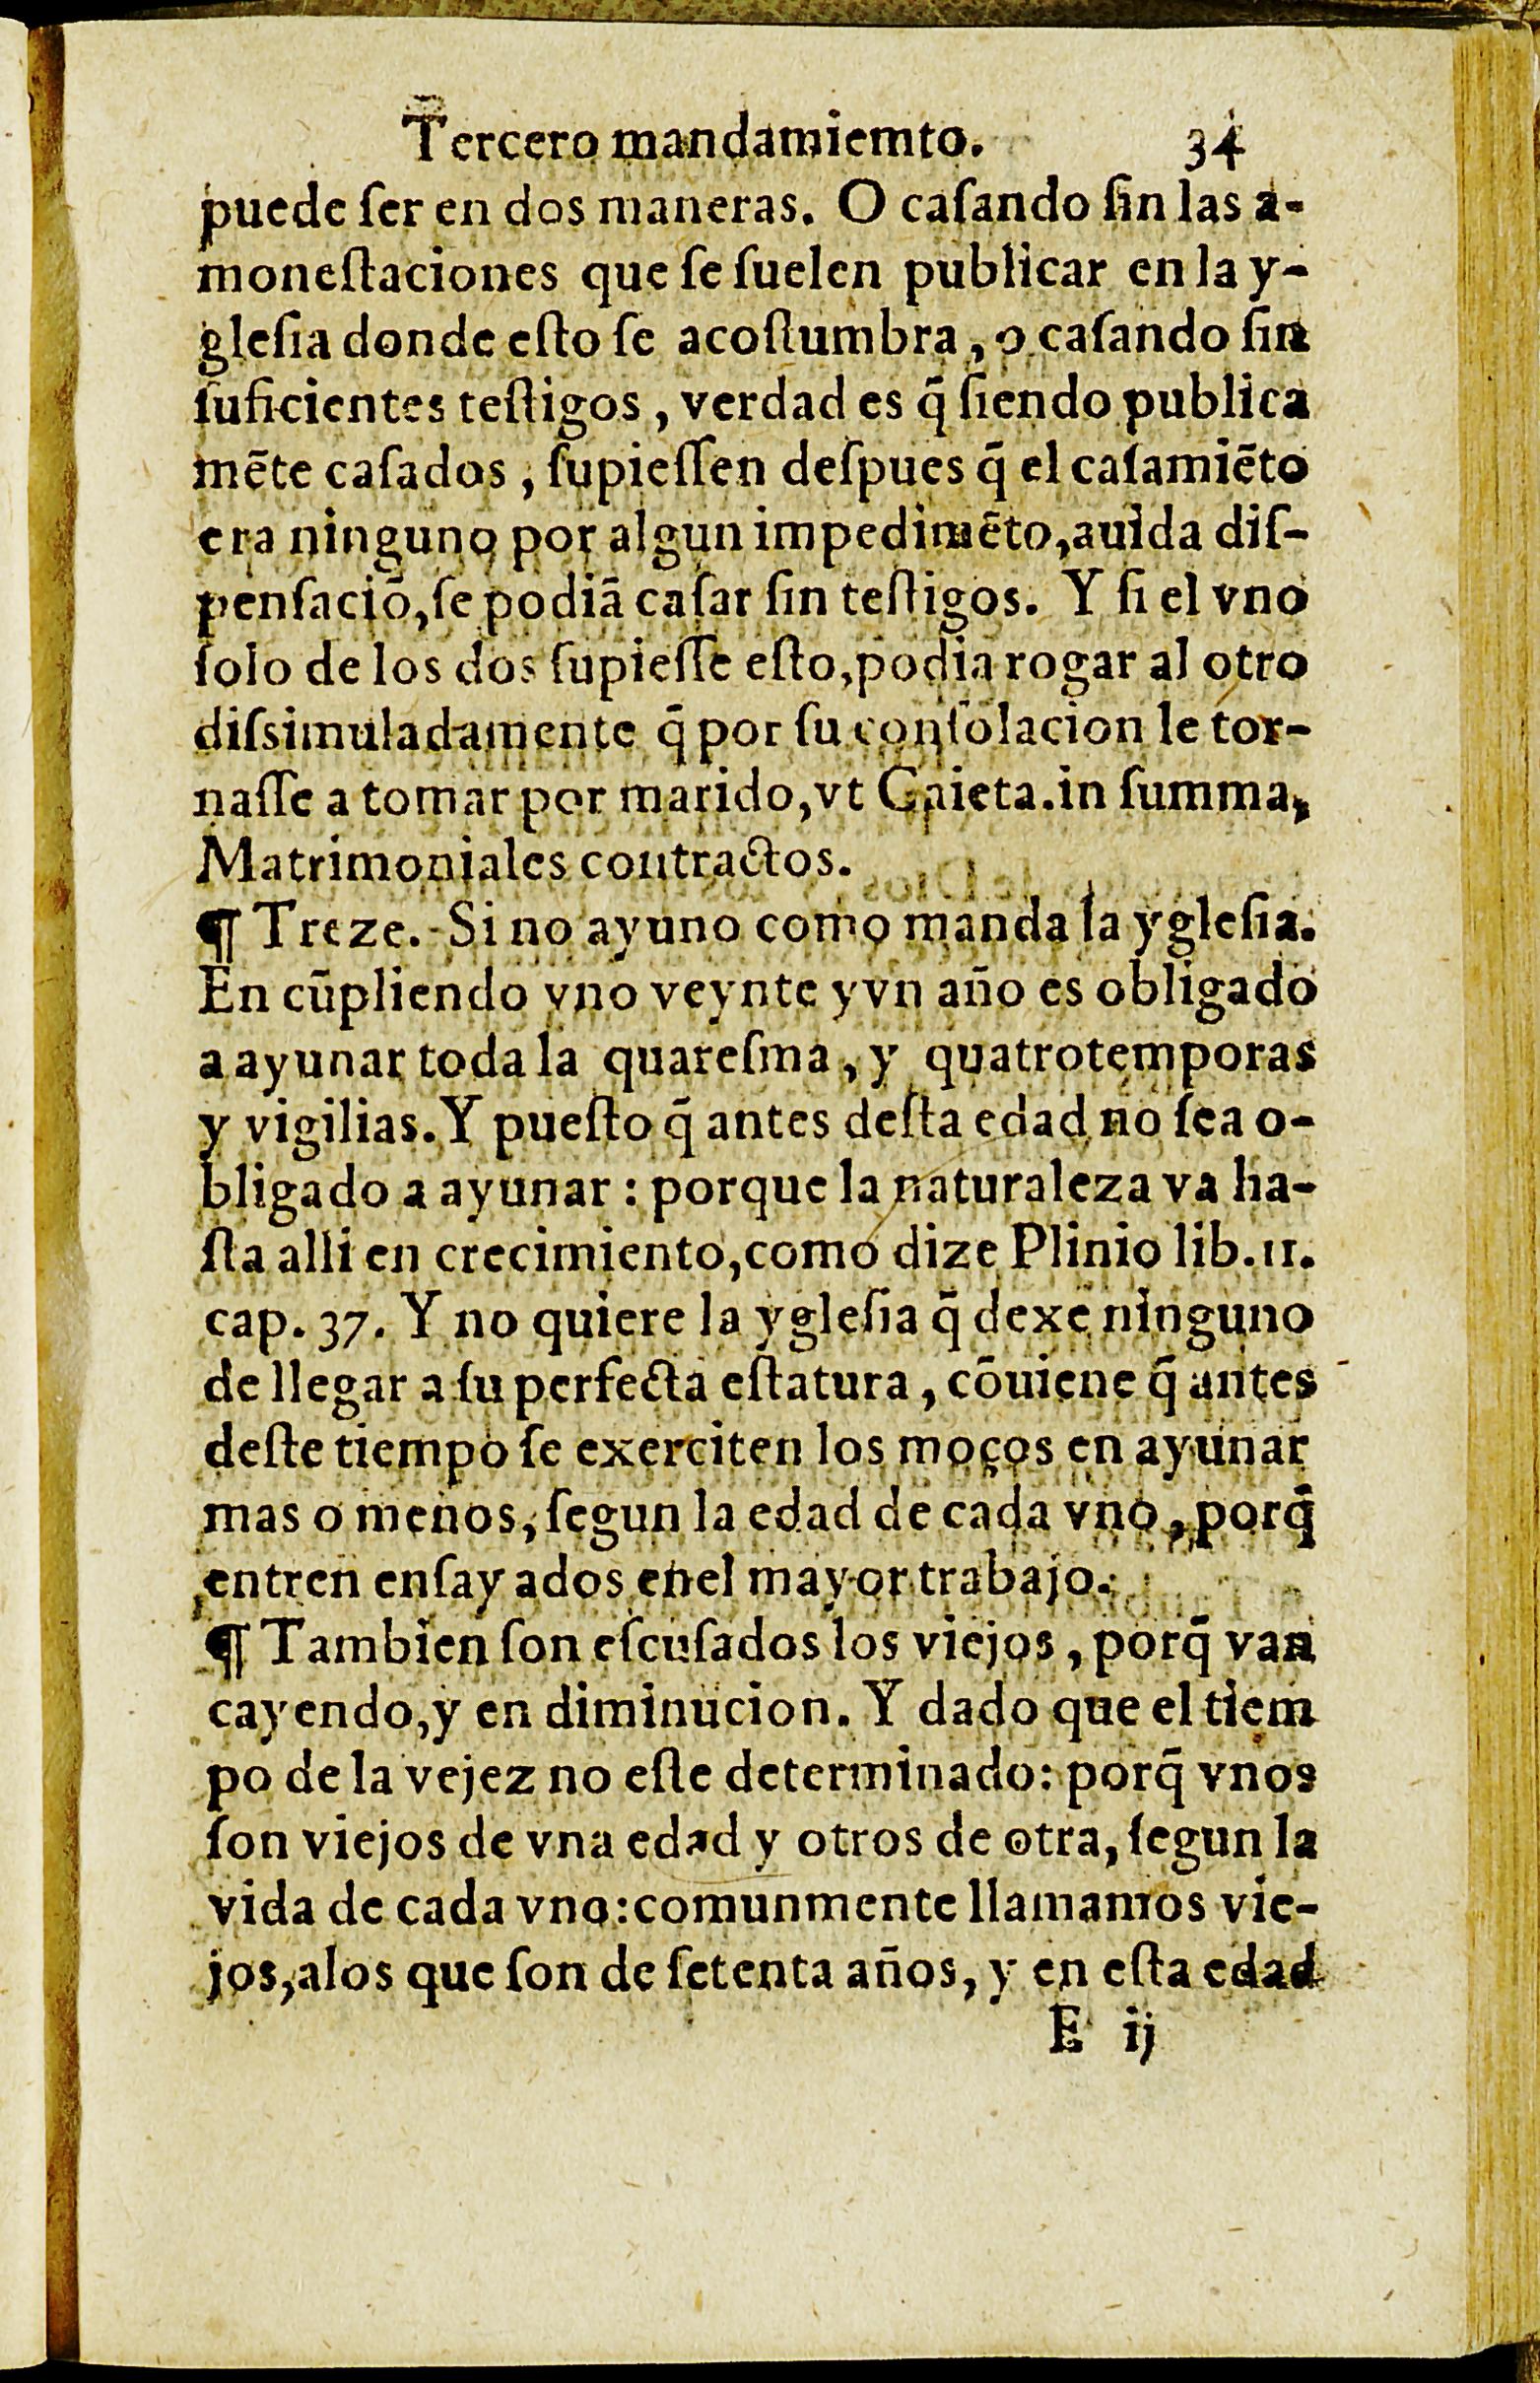 Tercero mandamiemto. 34
puede ſer en dos maneras. O caſando ſin las a-
moneſtaciones que ſe ſuelen publicar en la y-
gleſia donde eſto ſe acoſtumbra, o caſando ſin
ſuficientes teſtigos, verdad es q̃ ſiendo publica
mẽte caſados, ſupieſſen deſpues q̃ el caſamiẽto
era ninguno por algun impedimẽto, auida diſ-
penſaciõ, ſe podiã caſar ſin teſtigos. Y ſi el vno
ſolo de los dos ſupieſſe eſto, podia rogar al otro
diſsimuladamente q̃ por ſu conſolacion le tor-
naſſe a tomar por marido, vt Gaieta. in ſumma,
Matrimoniales contractos.
¶ Treze. Si no ayuno como manda la ygleſia.
En cũpliendo vno veynte y vn año es obligado
a ayunar toda la quareſma, y quatrotemporas
y vigilias. Y pueſto q̃ antes deſta edad no ſea o-
bligado a ayunar: porque la naturaleza va ha-
ſta alli en crecimiento, como dize Plinio lib. 11.
cap. 37. Y no quiere la ygleſia q̃ dexe ninguno
de llegar a ſu perfecta eſtatura, cõuiene q̃ antes
deſte tiempo ſe exerciten los moços en ayunar
mas o menos, ſegun la edad de cada vno, porq̃
entren enſayados enel mayor trabajo.
¶ Tambien ſon eſcuſados los viejos, porq̃ van
cayendo, y en diminucion. Y dado que el tiem
po de la vejez no eſte determinado: porq̃ vnos
ſon viejos de vna edad y otros de otra, ſegun la
vida de cada vno: comunmente llamamos vie-
jos, alos que ſon de ſetenta años, y en eſta edad
E ij